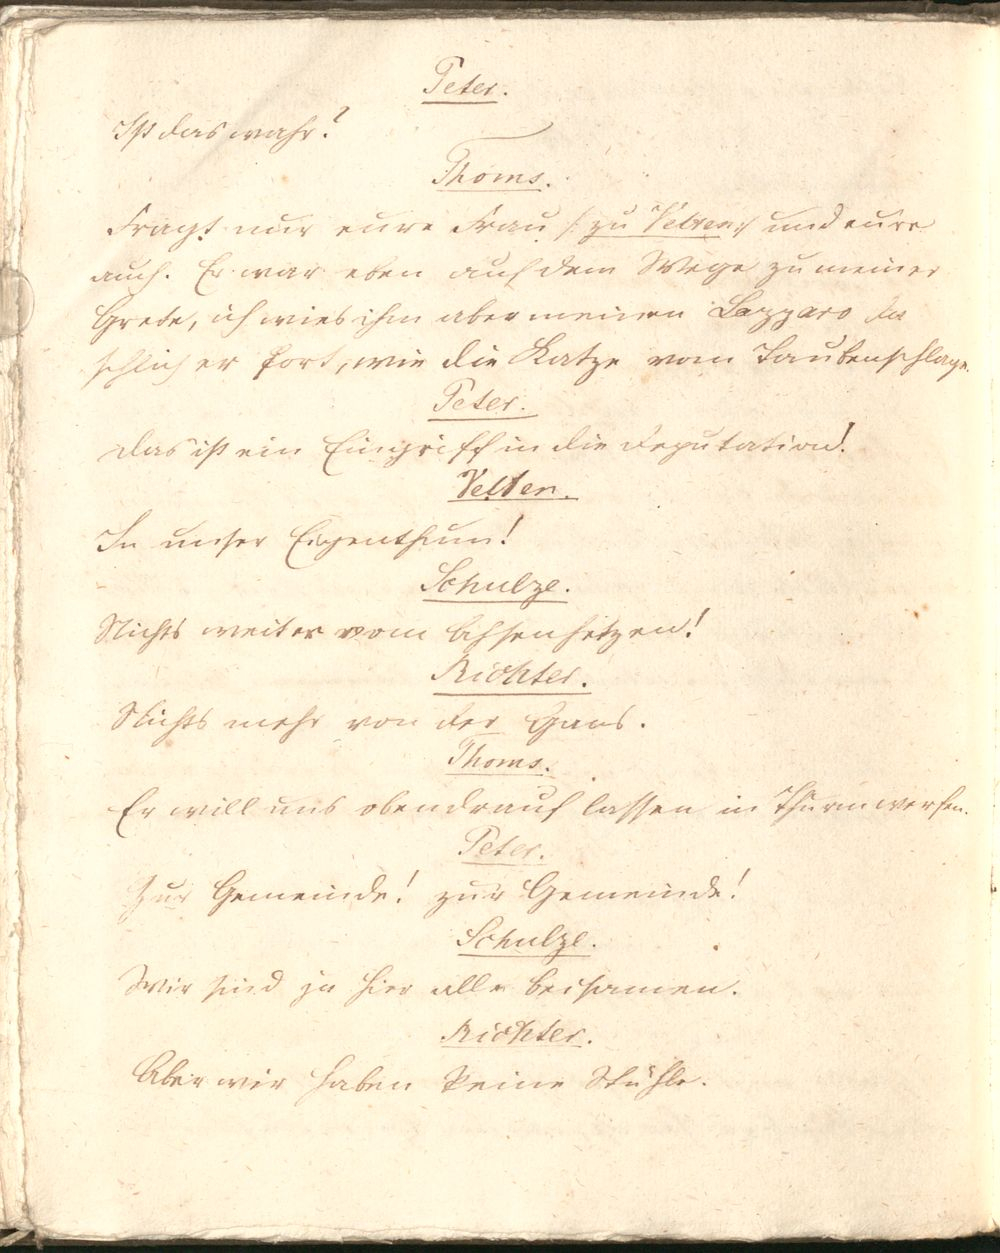 Peter.
Ist das wahr?
Thoms.
Fragt nur eure Frau /: zu Velten :/ und eure
auch. Er war eben auf dem Wege zu meiner
Grete, ich wies ihm aber meinen Lazzaro da
schlich er fort, wie die Katze vom Taubenschlage.
Peter.
Das ist ein Eingriff in die Deputation!
Velten.
In unser Eigenthum!
Schulze.
Nichts weiter vom Ochsenhetzen!
Richter.
Nichts mehr von der Gans.
Thoms.
Er will uns obendrauf lassen in Thurm werfen.
Peter.
Zur Gemeinde! zur Gemeinde!
Schulze.
Wir sind ja hier alle beisamen.
Richter.
Aber wir haben keine Stühle.